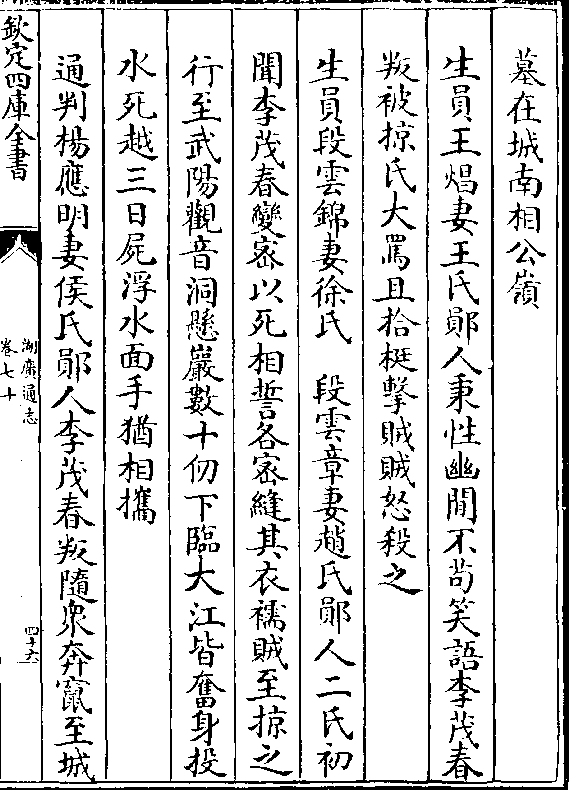 墓在城南相公嶺
生員王焻妻王氏鄖人秉性幽閒不苟笑語李茂春
叛被掠氏大罵且拾梃擊賊賊怒殺之
生員段雲錦妻徐氏　段雲章妻趙氏鄖人二氏初
聞李茂春變密以死相誓各密縫其衣襦賊至掠之
行至武陽觀音洞懸巖數十仞下臨大江皆奮身投
水死越三日屍浮水面手猶相攜
通判楊應明妻侯氏鄖人李茂春叛隨衆奔竄至城
欽定四庫全書
湖廣通志
卷七十
四十六